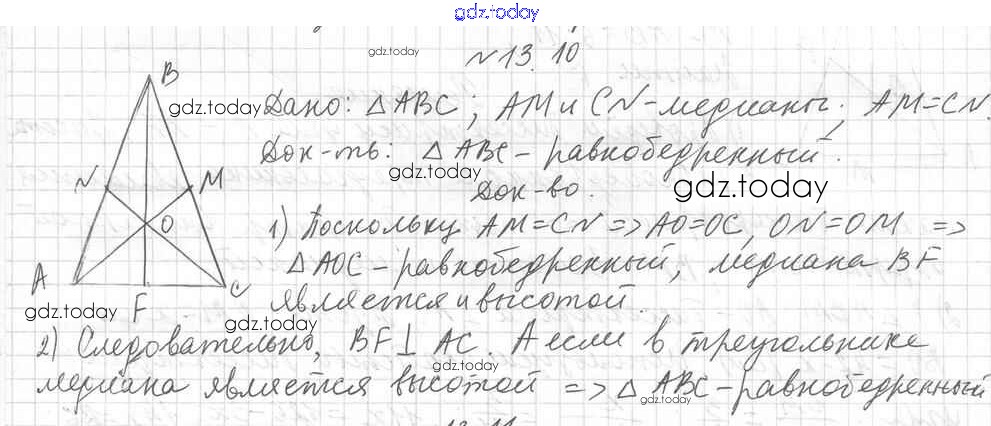 gdz.today
№ 13.10
gdz.today
B
gdz.today
Дано: △ABC; AM и CN-медианы; AM=CN.
Док-ть: △ABC-равнобедренный.
gdz.today
N
M
Док-во.
gdz.today
O
1) Поскольку AM=CN => AO=OC, ON=OM =>
△AOC-равнобедренный, медиана BF
A
C
является и высотой.
gdz.today
F
gdz.today
2) Следовательно, BF⊥AC. А если в треугольнике
gdz.today
медиана является высотой => △ABC-равнобедренный
gdz.today